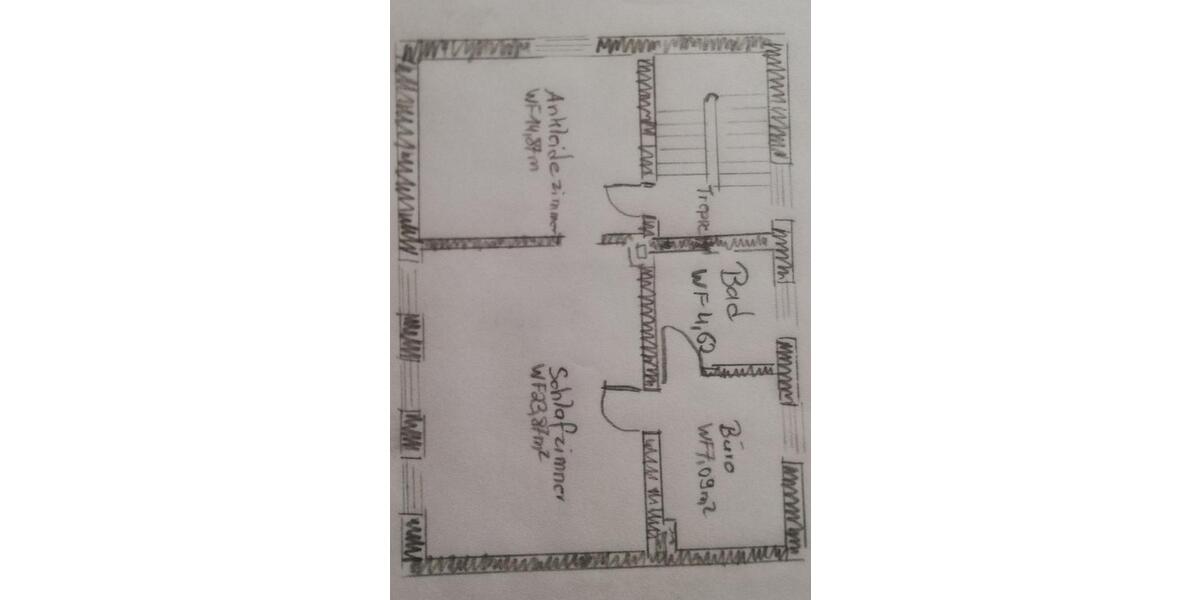 Ankleidezimmer
WF14,87m
Treppe
Bad
WF4,62
Schlafzimmer
WF23,87m²
Büro
WF7,09m²